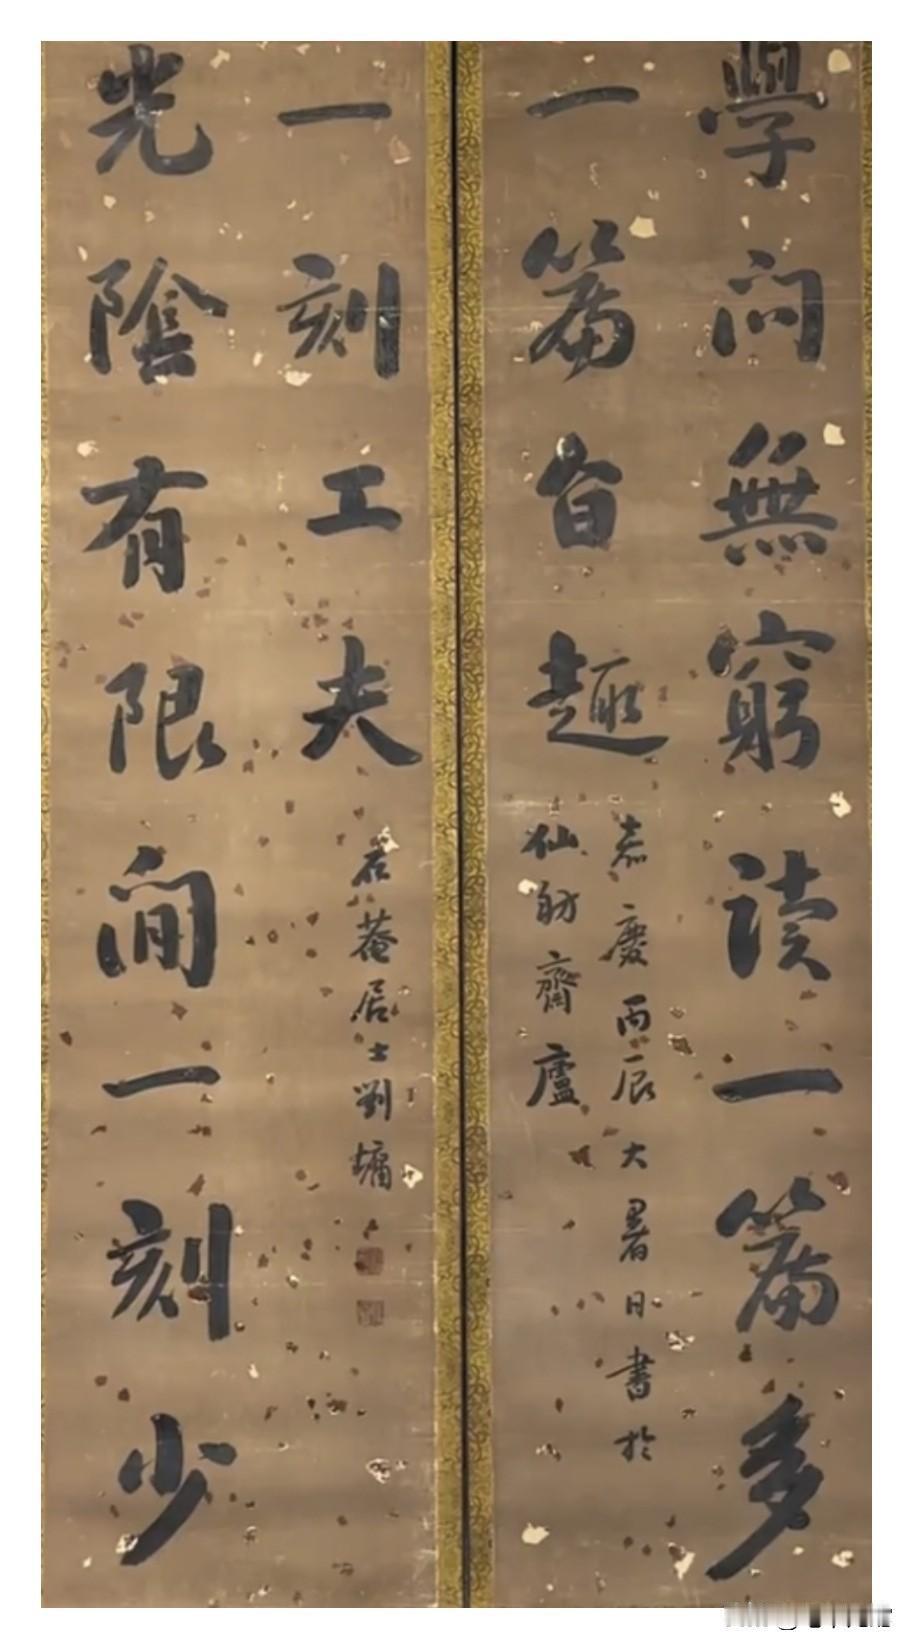 學問無窮讀一篇多
一篇旨趣
嘉慶丙辰大暑日書於
仙舫齋廬
光陰有限間一刻少
一刻工夫
石菴居士劉墉